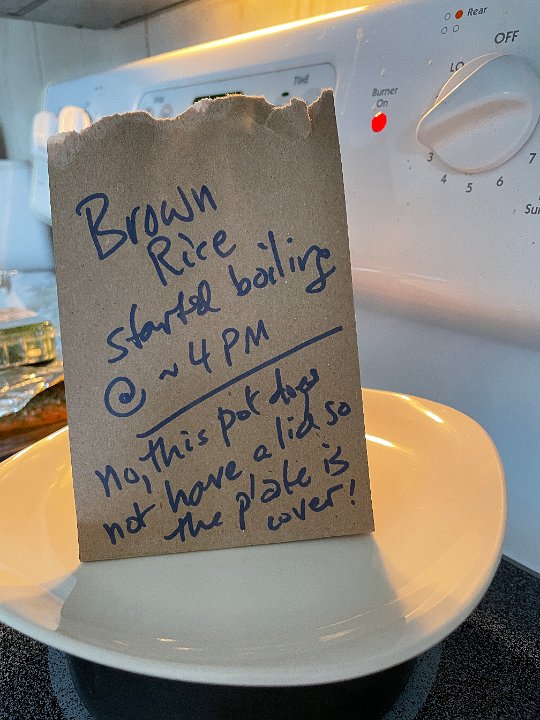 Rear
OFF
LO
TIME
Burner
On
3
4
5
6
7
Sur
Brown
Rice
started boiling
@ ~ 4 PM
no, this pot does
not have a lid so
the plate is
cover!